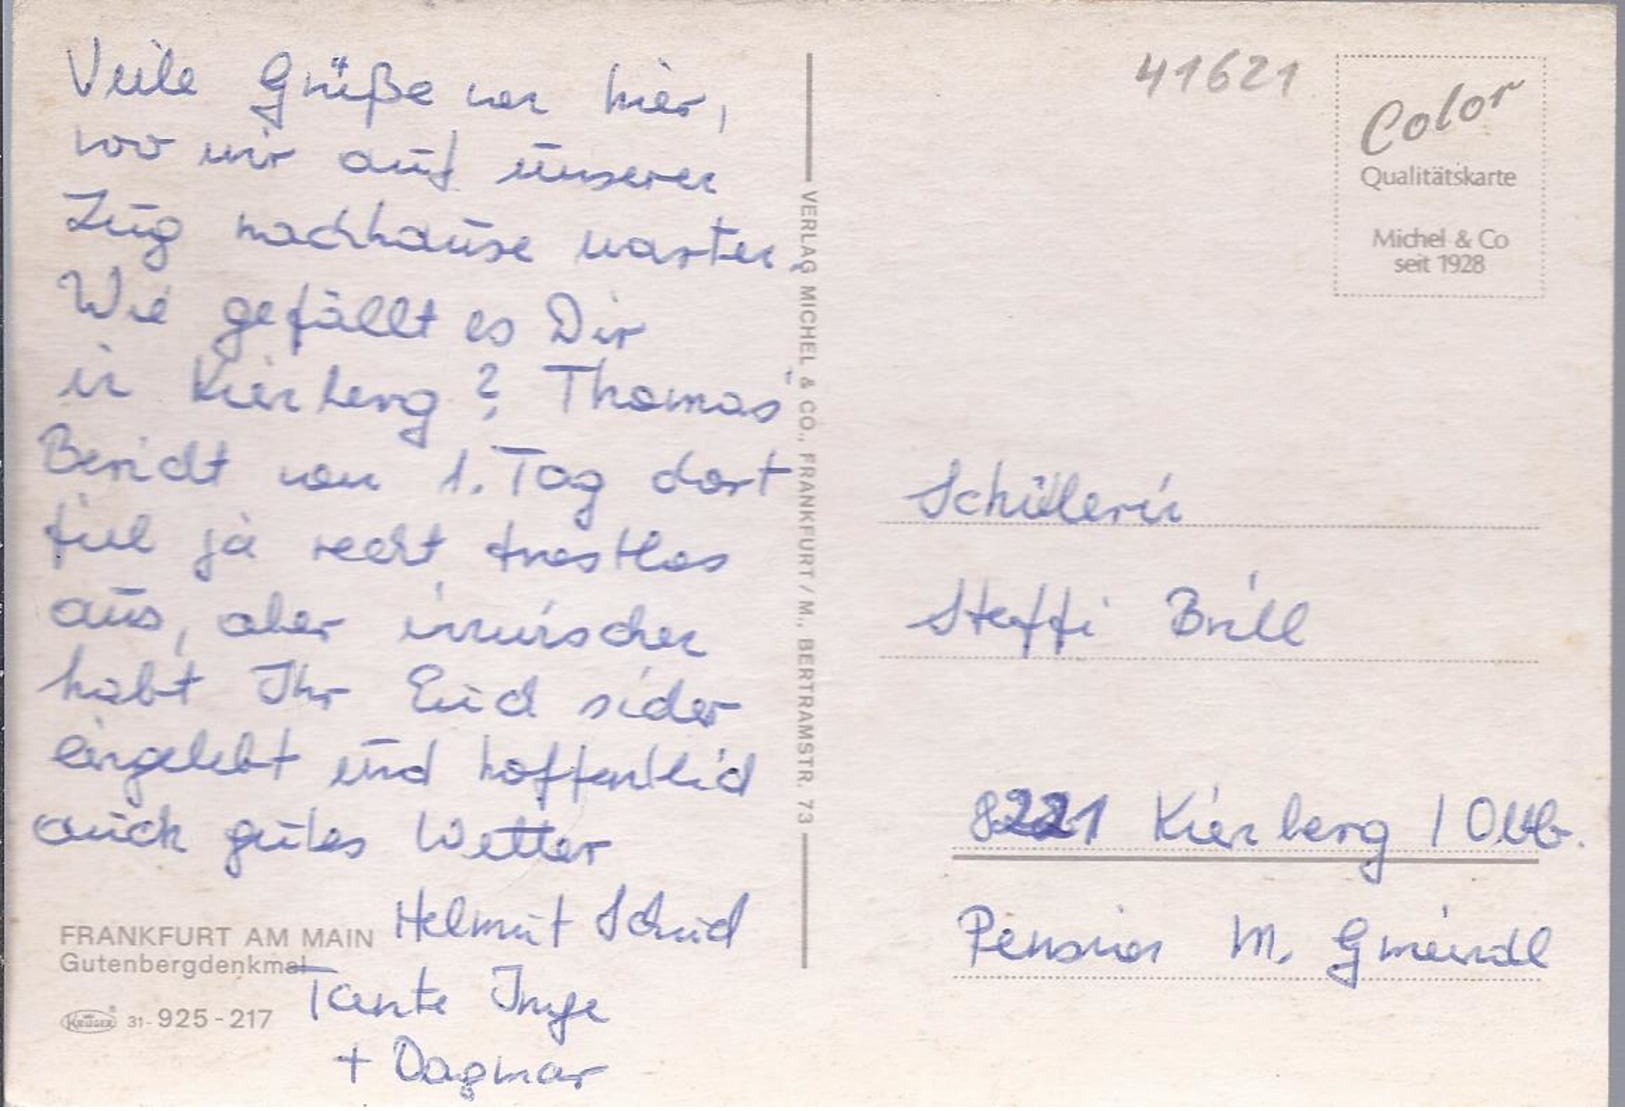 Viele Grüße von hier,
wo wir auf unseren
Zug nachhause warten.
Wie gefällt es Dir
in Kienberg? Thomas'
Bericht vom 1. Tag dort
fiel ja recht trostlos
aus, aber inzwischen
habt Ihr Euch sicher
eingelebt und hoffentlich
auch gutes Wetter
Helmut Schmid
Tante Inge
+ Dagmar
FRANKFURT AM MAIN
Gutenbergdenkmal
KRÜGER 31-925-217
VERLAG MICHEL & CO., FRANKFURT / M., BERTRAMSTR. 73
41621
Color
Qualitätskarte
Michel & Co
seit 1928
Schülerin
Steffi Brill
8221 Kienberg / Obb.
Pension M. Gmeindl